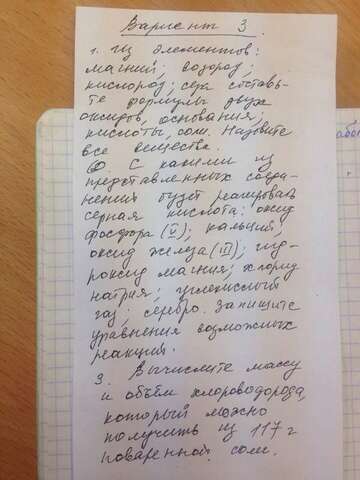 Вариант 3
1. Из элементов:
магний; водород;
кислород; сера составь-
те формулы двух
оксидов, основания;
кислоты, соли. Назовите
все вещества.
2. С какими из
представленных соеди-
нений будет реагировать
серная кислота: оксид
фосфора (V); кальций;
оксид железа (III); гид-
роксид магния; хлорид
натрия; углекислый
газ; серебро. Запишите
уравнения возможных
реакций.
3. Вычислите массу
и объём хлороводорода,
который можно
получить из 117 г
поваренной соли.